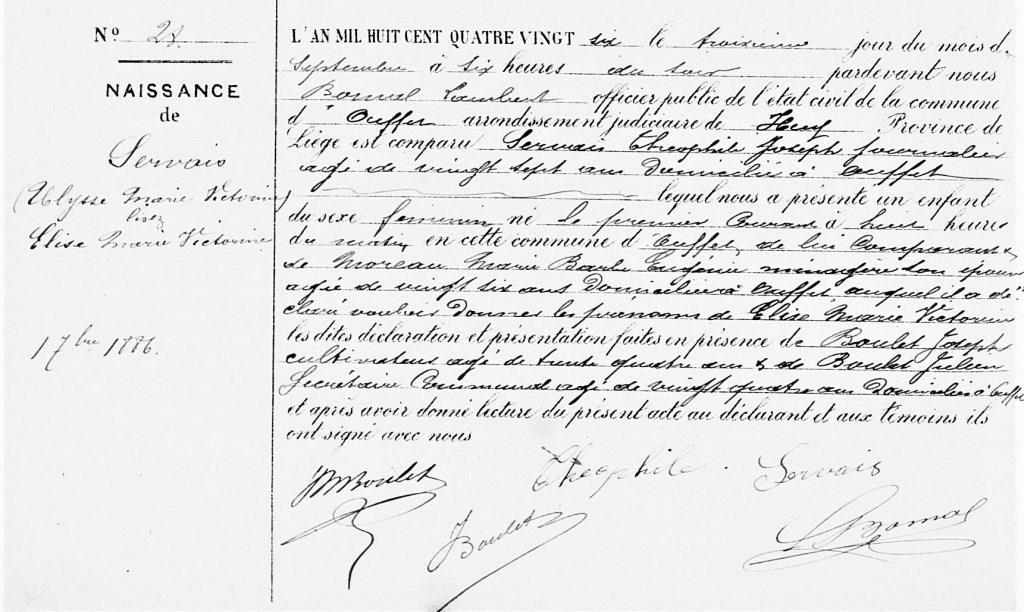 Nº 28
NAISSANCE
de
Servais
(Ulysse Marie Victorine)
lisez
Elise Marie Victorine
1 7bre 1886.
L'AN MIL HUIT CENT QUATRE VINGT six le troisième jour du mois d.
Septembre à six heures du soir pardevant nous
Bomal Lambert officier public de l'état civil de la commune
d' Ouffet arrondissement judiciaire de Huy Province de
Liège est comparu Servais Théophile Joseph journalier
agé de vingt sept ans domicilié à Ouffet
lequel nous a présenté un enfant
du sexe féminin né le premier courant à huit heures
du matin en cette commune d' Ouffet, de lui comparant &
de Moreau Marie Barbe Eugénie ménagère son épouse
agée de vingt six ans domiciliée à Ouffet auquel il a dé
claré vouloir donner les prénoms de Elise Marie Victorine
les dites déclaration et présentation faites en présence de Boulet Joseph
cultivateur agé de trente quatre ans & de Boulet Julien
Secrétaire Communal agé de vingt quatre ans domiciliés à Ouffet
et après avoir donné lecture du présent acte au déclarant et aux témoins ils
ont signé avec nous
Théophile Servais
Boulet
J Boulet
L Bomal